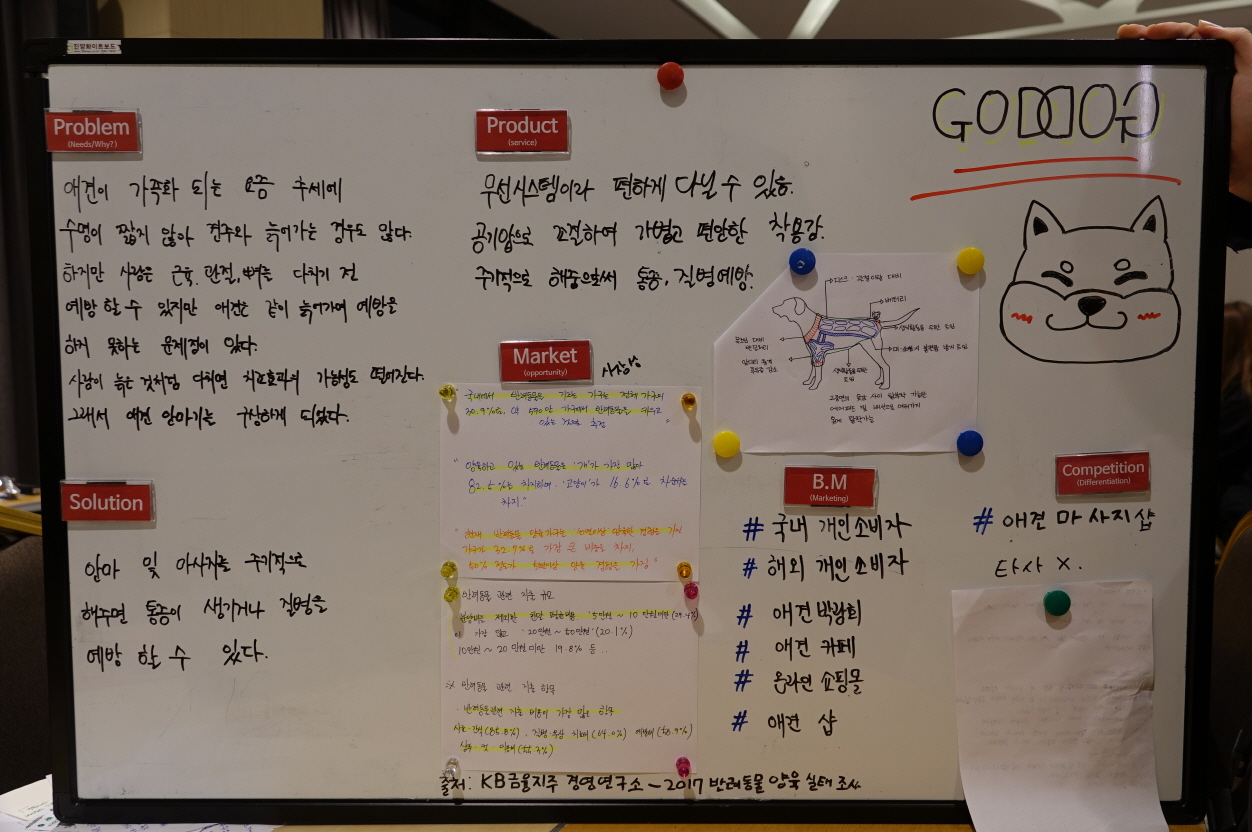 한양화이트보드
GODDOG
Problem
(Needs/Why?)
애견이 가족화 되는 요즘 추세에
수명이 짧지 않아 견주와 늙어가는 경우도 많다.
하지만 사람은 근육, 관절, 뼈를 다치기 전
예방 할 수 있지만 애견은 같이 늙어가며 예방을
하지 못하는 문제점이 있다.
사람이 늙은 것처럼 다치면 치료효과의 가능성도 떨어진다.
그래서 애견 안마기를 구상하게 되었다.
Solution
안마 및 마사지를 주기적으로
해주면 통증이 생기거나 질병을
예방 할 수 있다.
Product
(service)
무선시스템이라 편하게 다닐 수 있음.
공기압으로 조절하여 가볍고 편안한 착용감.
주기적으로 해줌으로써 통증, 질병예방.
배터리
Market
(opportunity)
시장성
국내에서 반려동물을 기르는 가구는 전체 가구의
30.9%로, 약 590만 가구에서 반려동물을 기르고
있는 것으로 추정"
"양육하고 있는 반려동물은 '개'가 가장 많다
82.5%를 차지하며, '고양이'가 16.6%로 차순위를
차지."
가구가 32.7%로 가장 큰 비중을 차지.
반려동물 관련 지출 규모
'5만원 ~ 10만원미만 (29.4%)
이 가장 많고 '20만원 ~ 50만원' (20.1%)
10만원 ~ 20만원 미만 19.8% 등...
※ 반려동물 관련 지출 항목
· 반려동물관련 지출 비용이 가장 많은 항목
사료·간식 (85.8%), 질병·부상 치료비 (64.0%)
출처: KB금융지주 경영연구소 - 2017 반려동물 양육 실태 조사
B.M
(Marketing)
# 국내 개인소비자
# 해외 개인소비자
# 애견박람회
# 애견 카페
# 온라인 쇼핑몰
# 애견 샵
Competition
(Differentiation)
# 애견 마사지샵
타사 X.